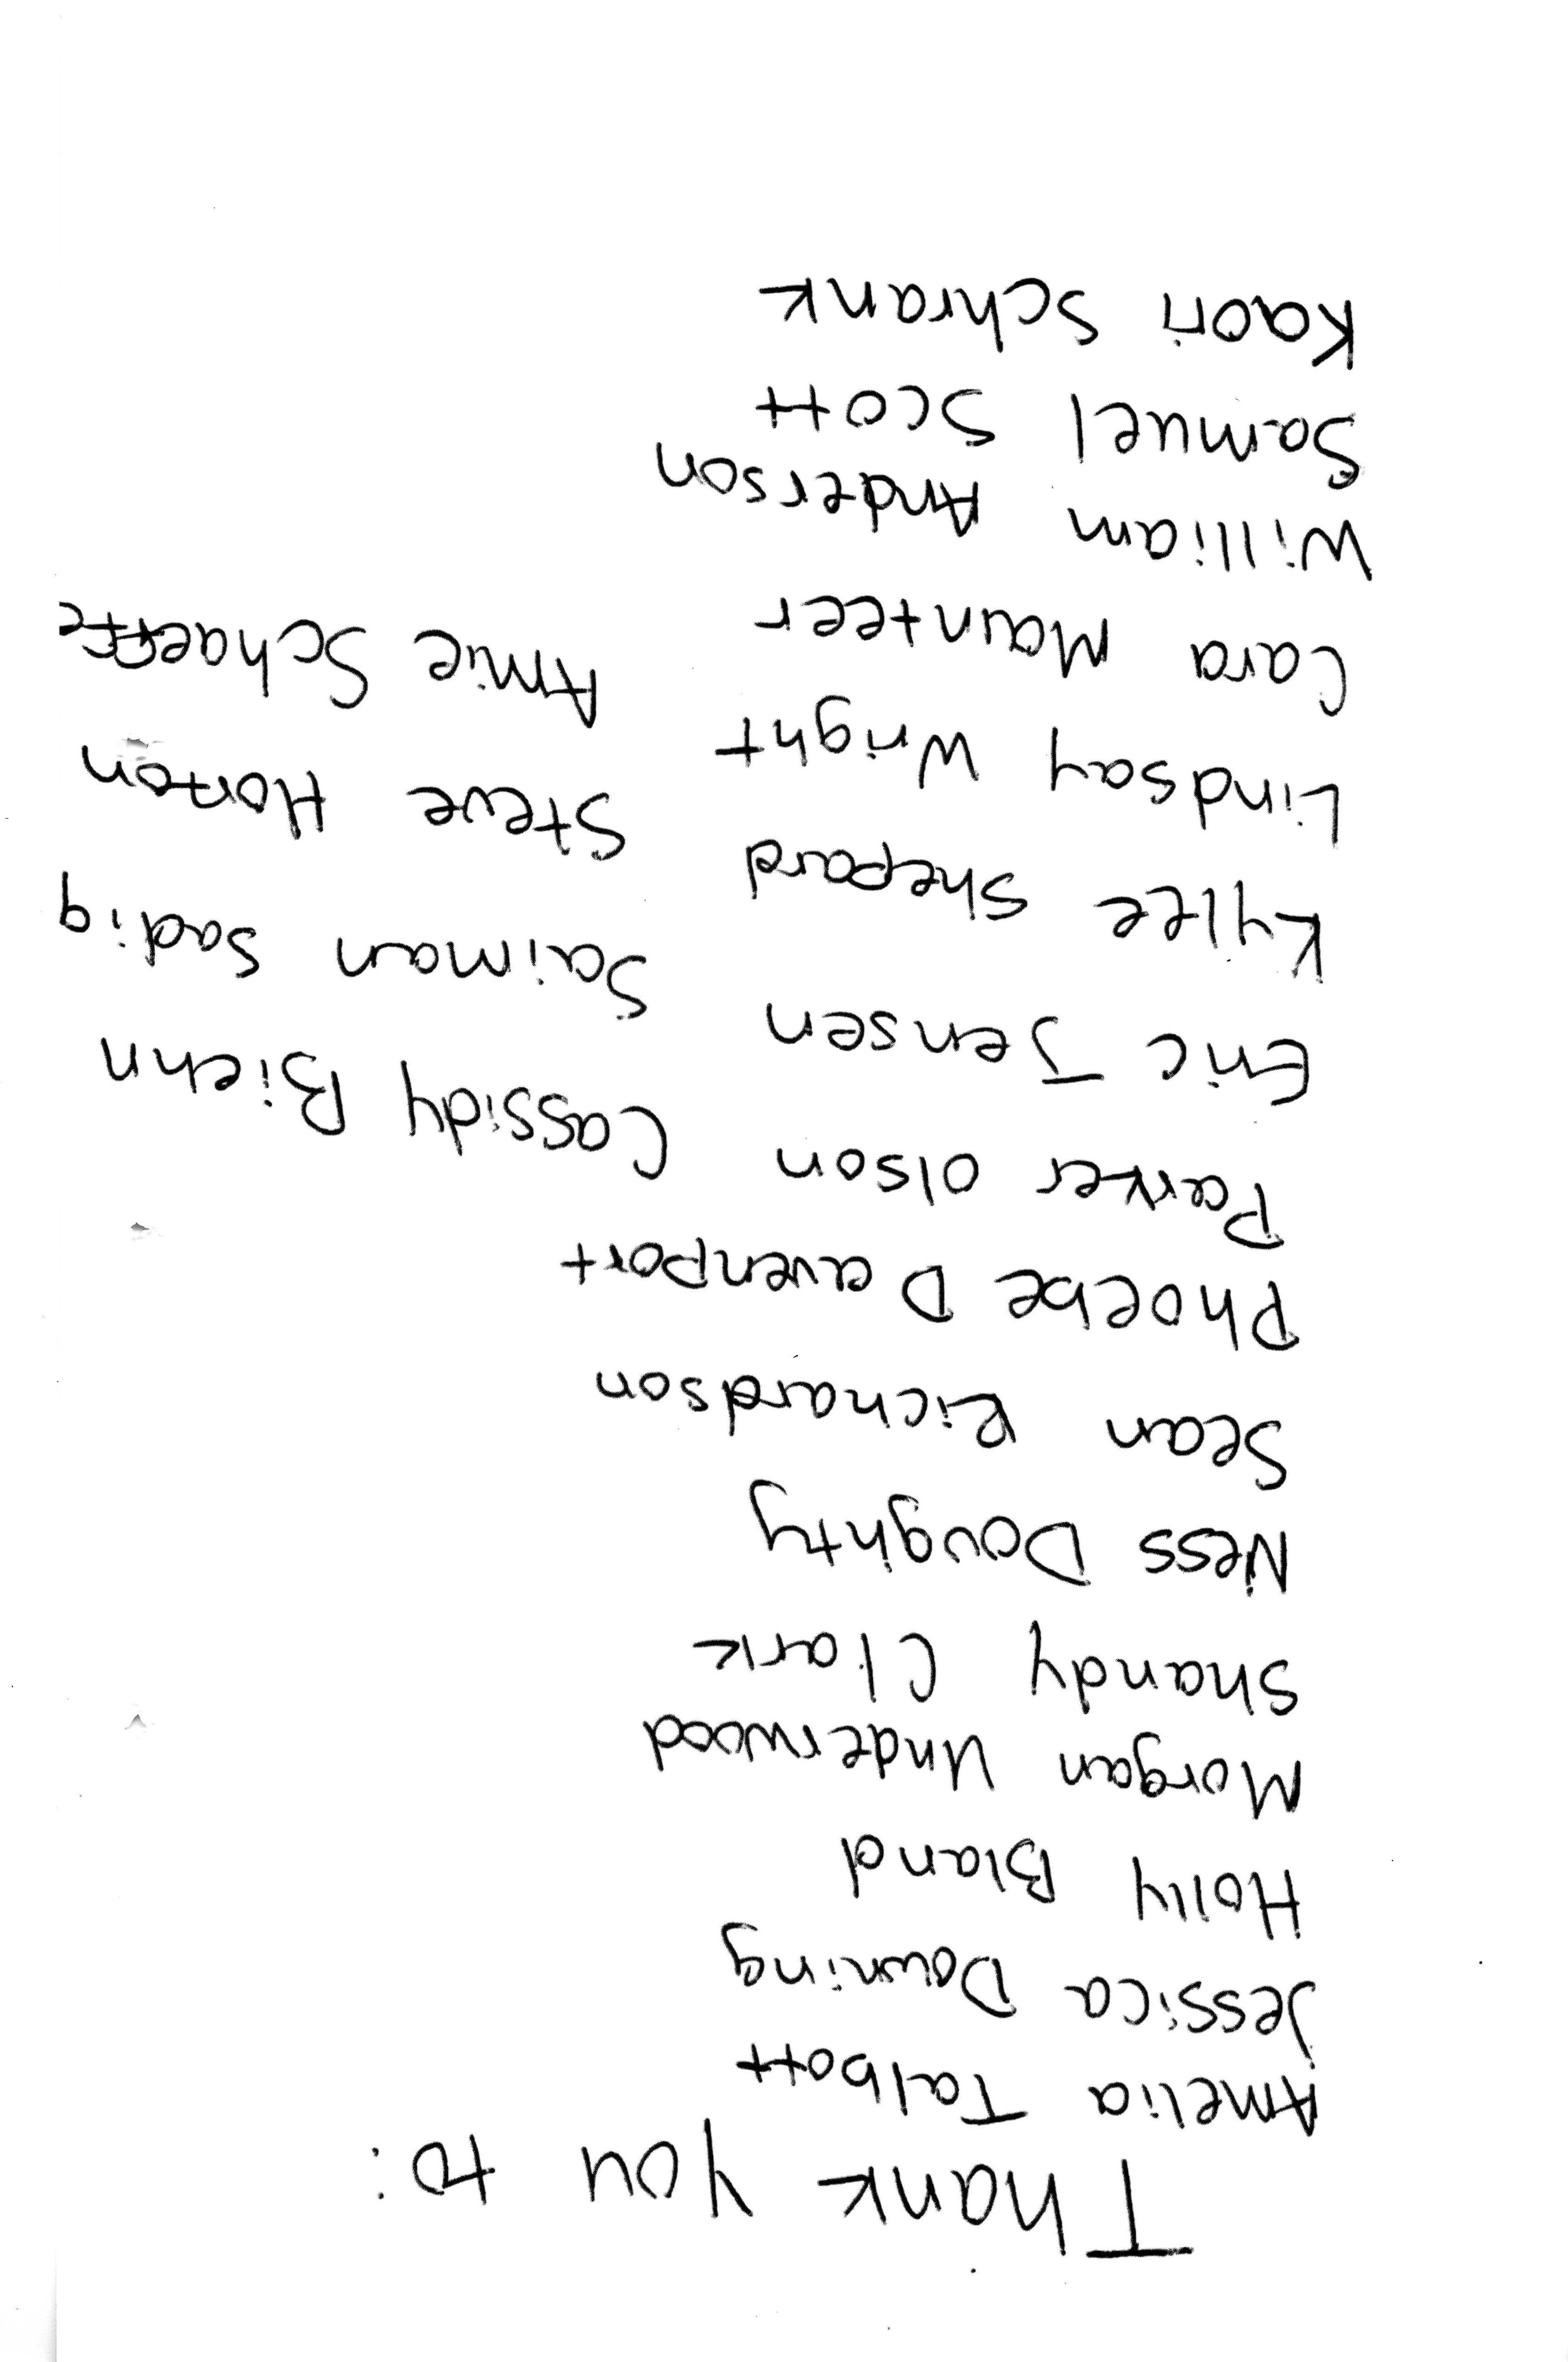 Thank you to:
Amelia Talbott
Jessica Downing
Holly Bland
Morgan Underwood
Shandy Clark
Ness Doughty
Sean Richardson
Phoebe Davenport
Parker Olson
Eric Jensen
Kylee Shepard
Lindsay Wright
Cara Maunteer
William Anderson
Samuel Scott
Kaori Schrank
Cassidy Biehn
Saiman Sadiq
Steve Horton
Amie Schaeffe